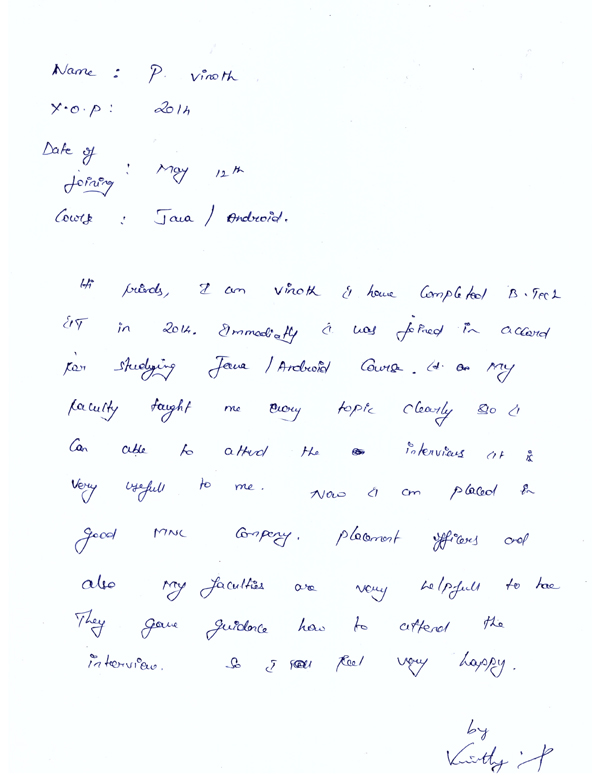 Name : P. Vinoth
Y.O.P : 2014
Date of
joining : May 12th
Course : Java / Android.
Hi friends, I am vinoth I have completed B.Tech
IT in 2014. Immediatly I was joined in accord
for studying Java / Android Course. My
faculty taught me every topic clearly so I
Can able to attend the interviews it is
very usefull to me. Now I am placed in
good MNC Company. placement officers and
also my faculties are very helpfull to me
They gave guidence how to attend the
interview. So I feel very happy.
by